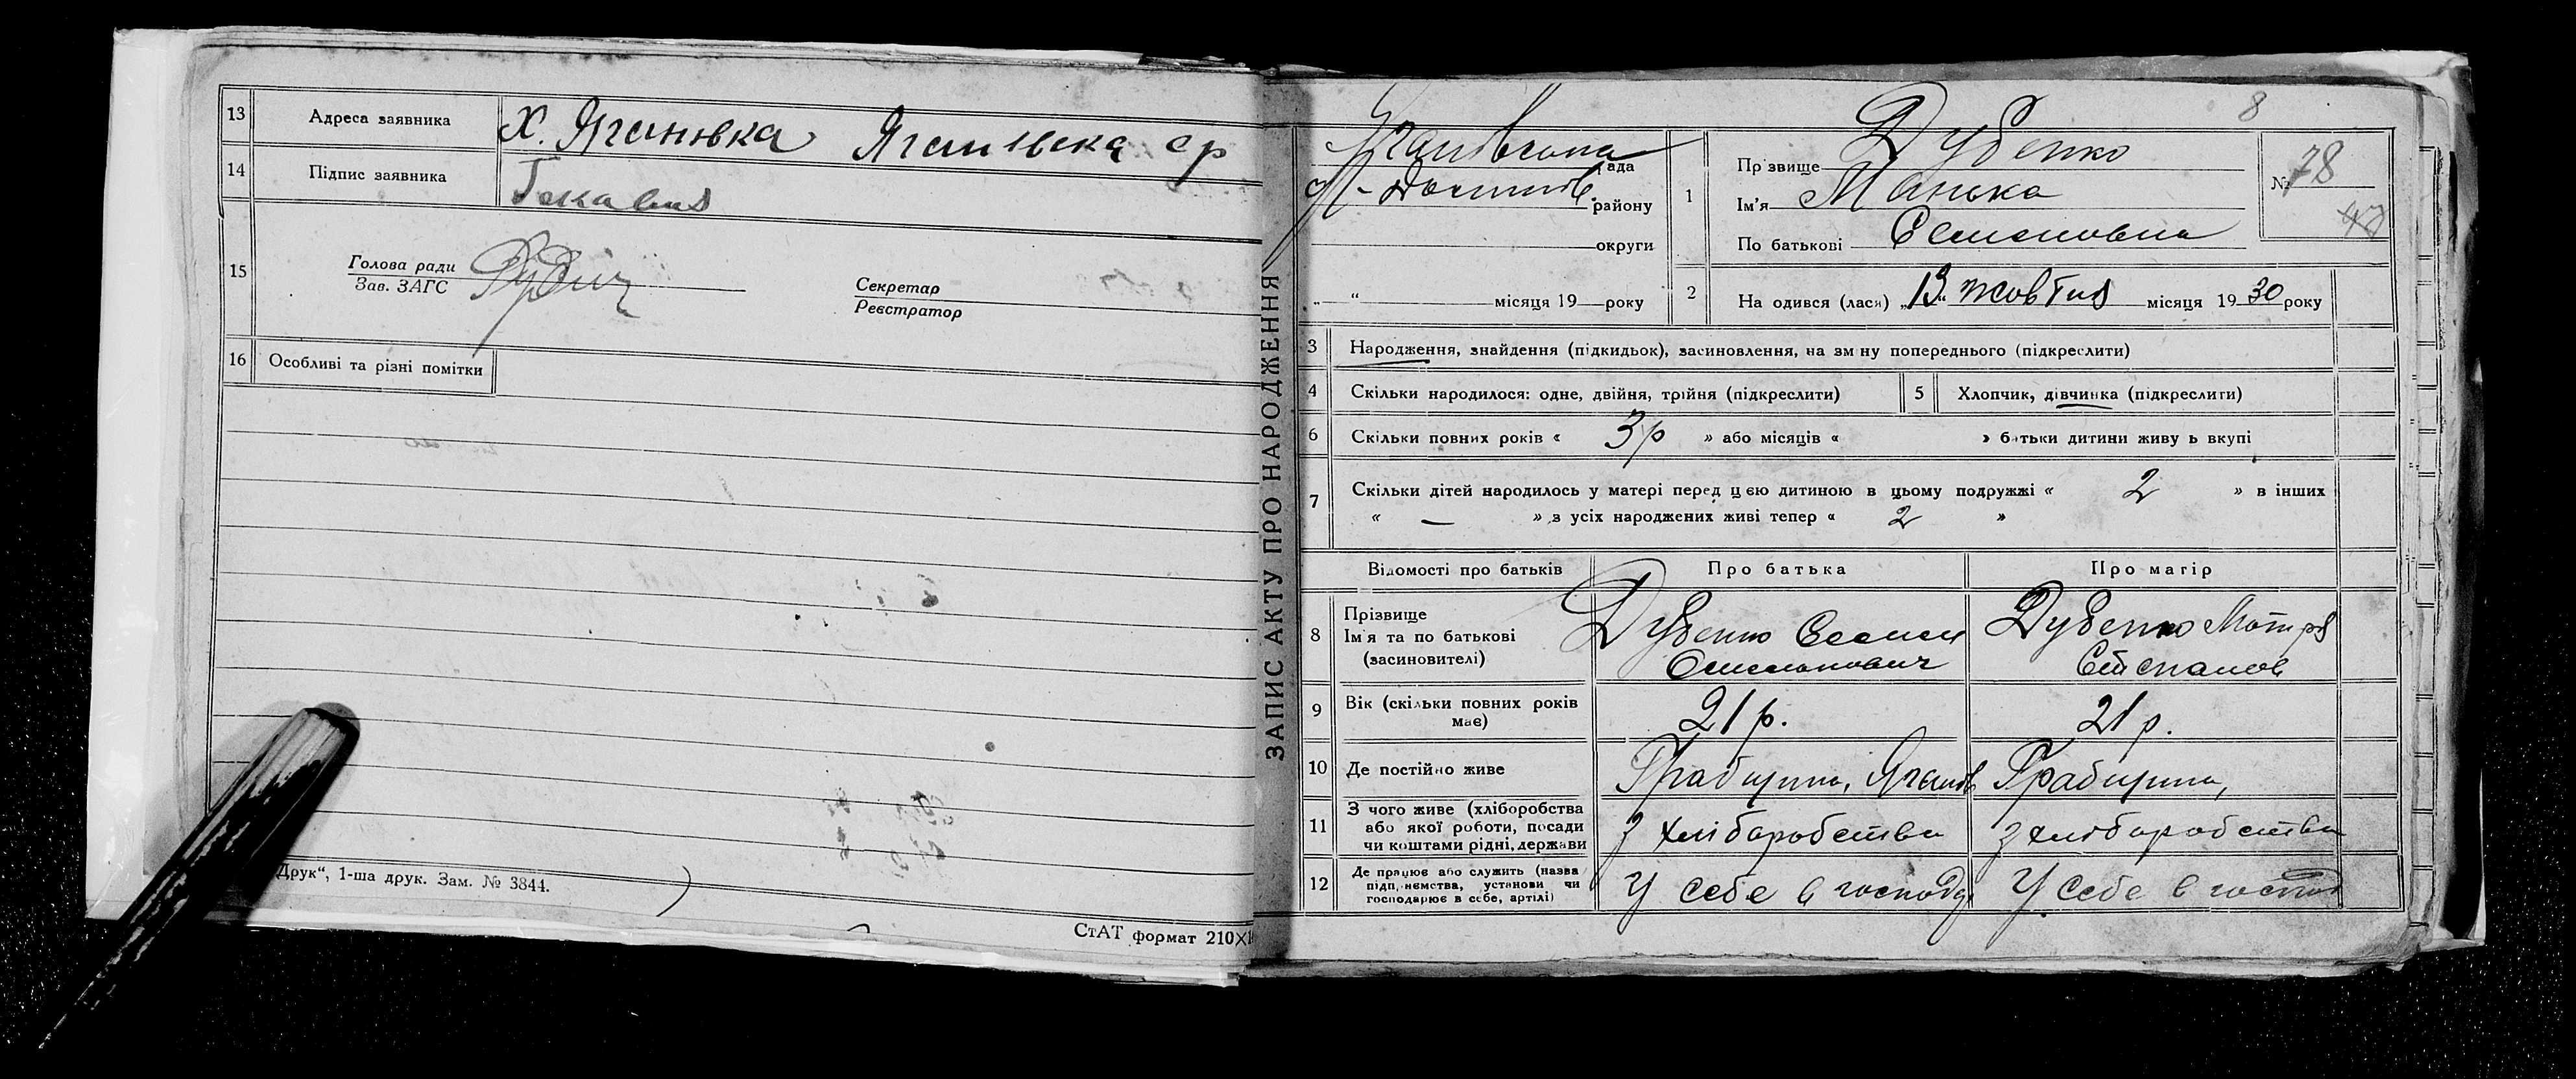 13 Адреса заявника Х. Яганівка Яганівська ср
14 Підпис заявника
15 Голова ради
Зав. ЗАГС
Секретар
Реєстратор
16 Особливі та різні помітки
Друк“, 1-ша друк. Зам. № 3844.
СтАТ формат 210×1
ЗАПИС АКТУ ПРО НАРОДЖЕННЯ
8
рада
району
округи
„ “ місяця 19 року
1 Прізвище Дубенко
Ім’я Манька
По батькові Семеновна
№ 78
47
2 На одився (лася) „13“ жовтня місяця 1930 року
3 Народження, знайдення (підкидьок), засиновлення, на зм ну попереднього (підкреслити)
4 Скільки народилося: одне, двійня, трійня (підкреслити) 5 Хлопчик, дівчинка (підкреслити)
6 Скільки повних років « 3 р » або місяців « » батьки дитини живу ь вкупі
7 Скільки дітей народилось у матері перед цією дитиною в цьому подружжі « 2 » в інших
« — » з усіх народжених живі тепер « 2 »
Відомості про батьків Про батька Про матір
8 Прізвище
Ім’я та по батькові
(засиновителі)
Дубенко Семен
Дубенко Мотря
Степанов
9 Вік (скільки повних років
має)
21 р. 21 р.
10 Де постійно живе
11 З чого живе (хліборобства
або якої роботи, посади
чи коштами рідні, держави
з хліборобства з хліборобства
12 Де працює або служить (назва
підприємства, установи чи
господарює в себе, артілі)
У себе в господ У себе в господ